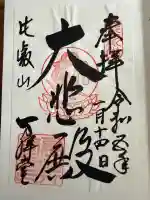 奉拝 令和五年
月十四日
大悲殿
比叡山
万拝堂